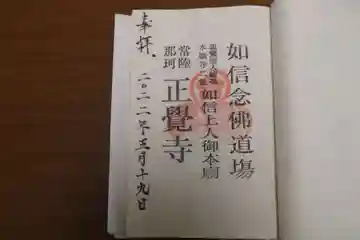 如信念佛道場
如信上人御本廟
常陸
那珂
正覺寺
奉拝、
二〇二二年三月十九日